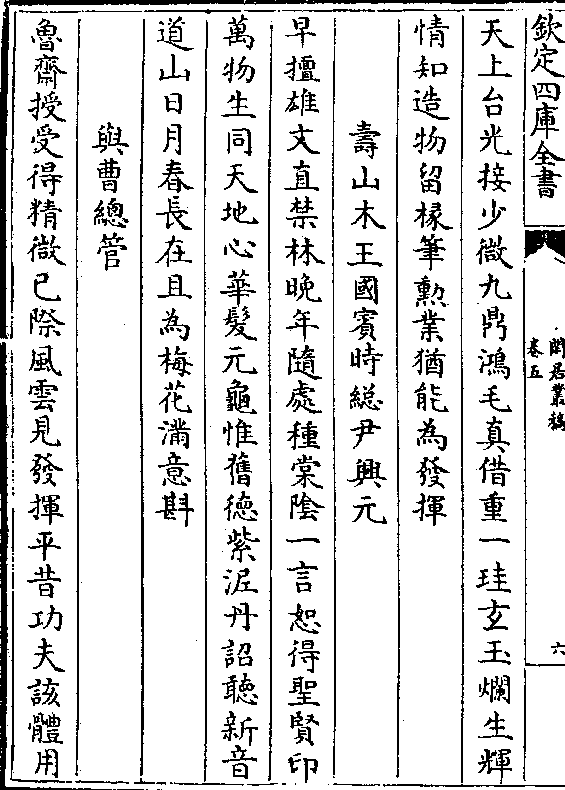 欽定四庫全書
閒居叢稿
卷五
六
天上台光接少微九鼎鴻毛真借重一珪玄玉爛生輝
情知造物留椽筆勲業猶能為發揮
壽山木王國賓時總尹興元
早擅雄文直禁林晚年隨處種棠陰一言恕得聖賢印
萬物生同天地心華髮元龜惟舊徳紫泥丹詔聽新音
道山日月春長在且為梅花滿意斟
與曹總管
魯齋授受得精微已際風雲見發揮平昔功夫該體用